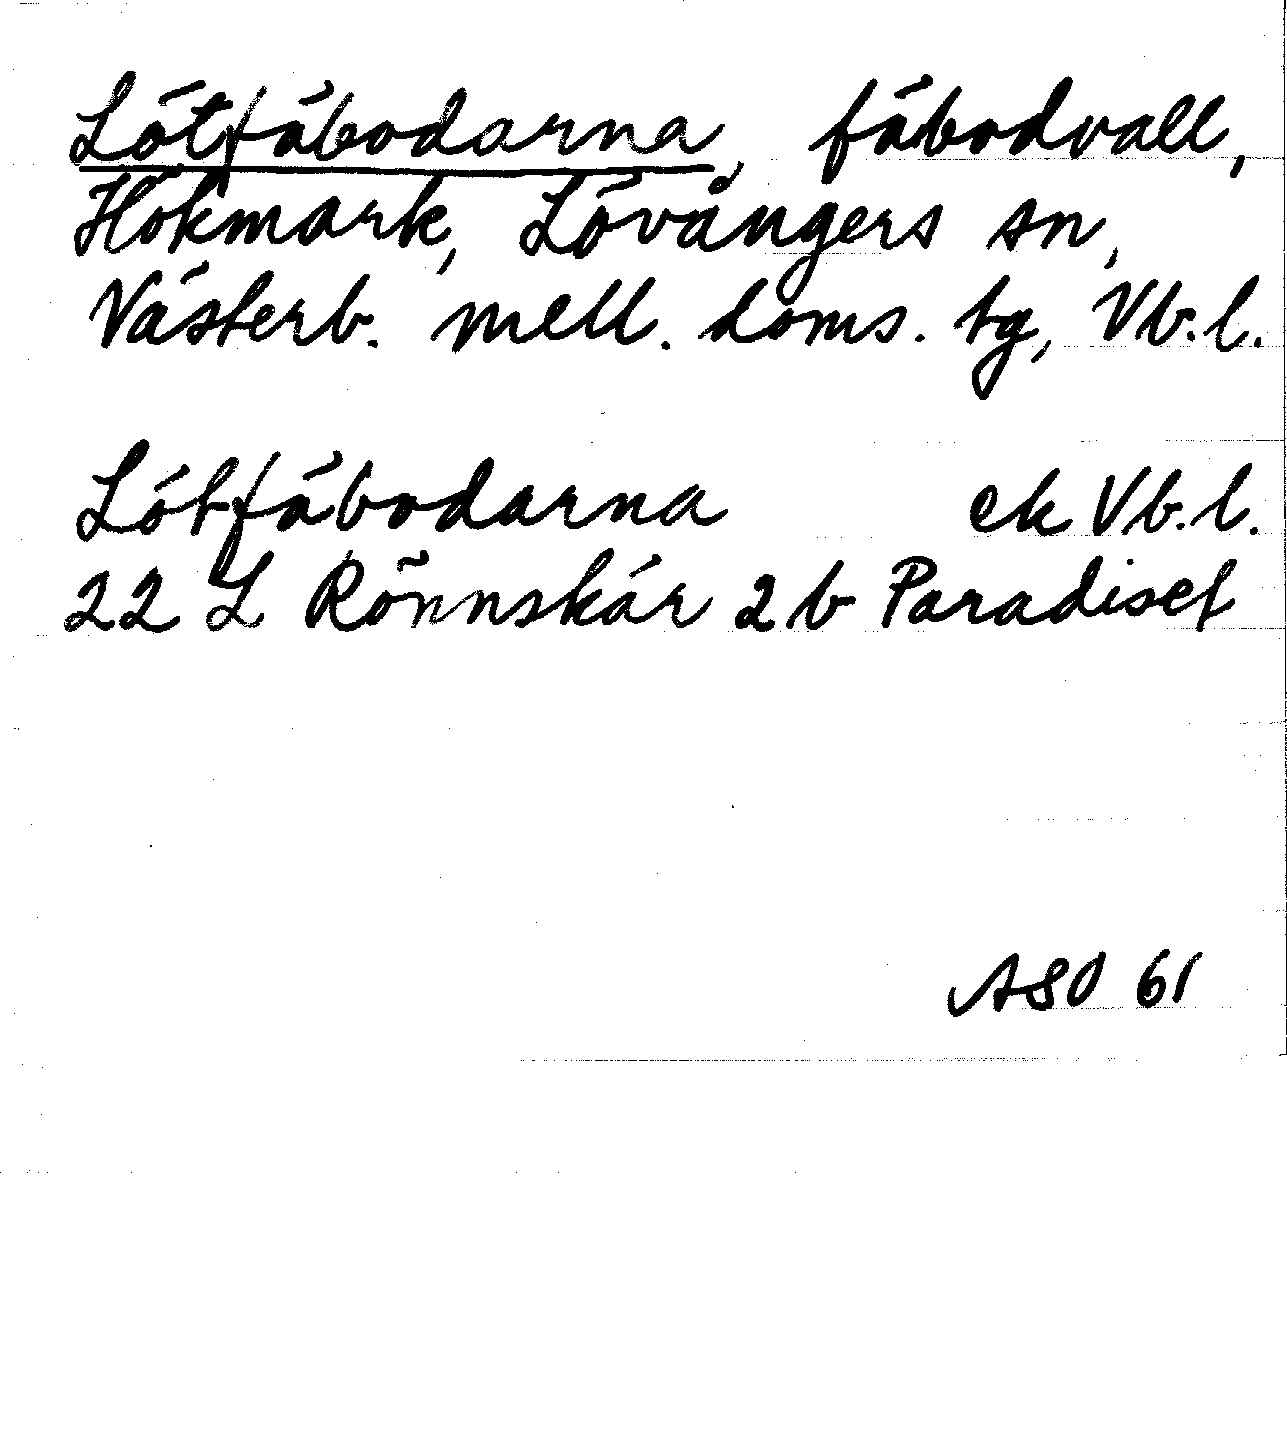 Lötfäbodarna, fäbodvall,
Hökmark, Lövångers sn,
Västerb. mell. doms. tg, Vb.l.
Lötfäbodarna ek Vb.l.
22 L Rönnskär 2b Paradiset
ASO 61